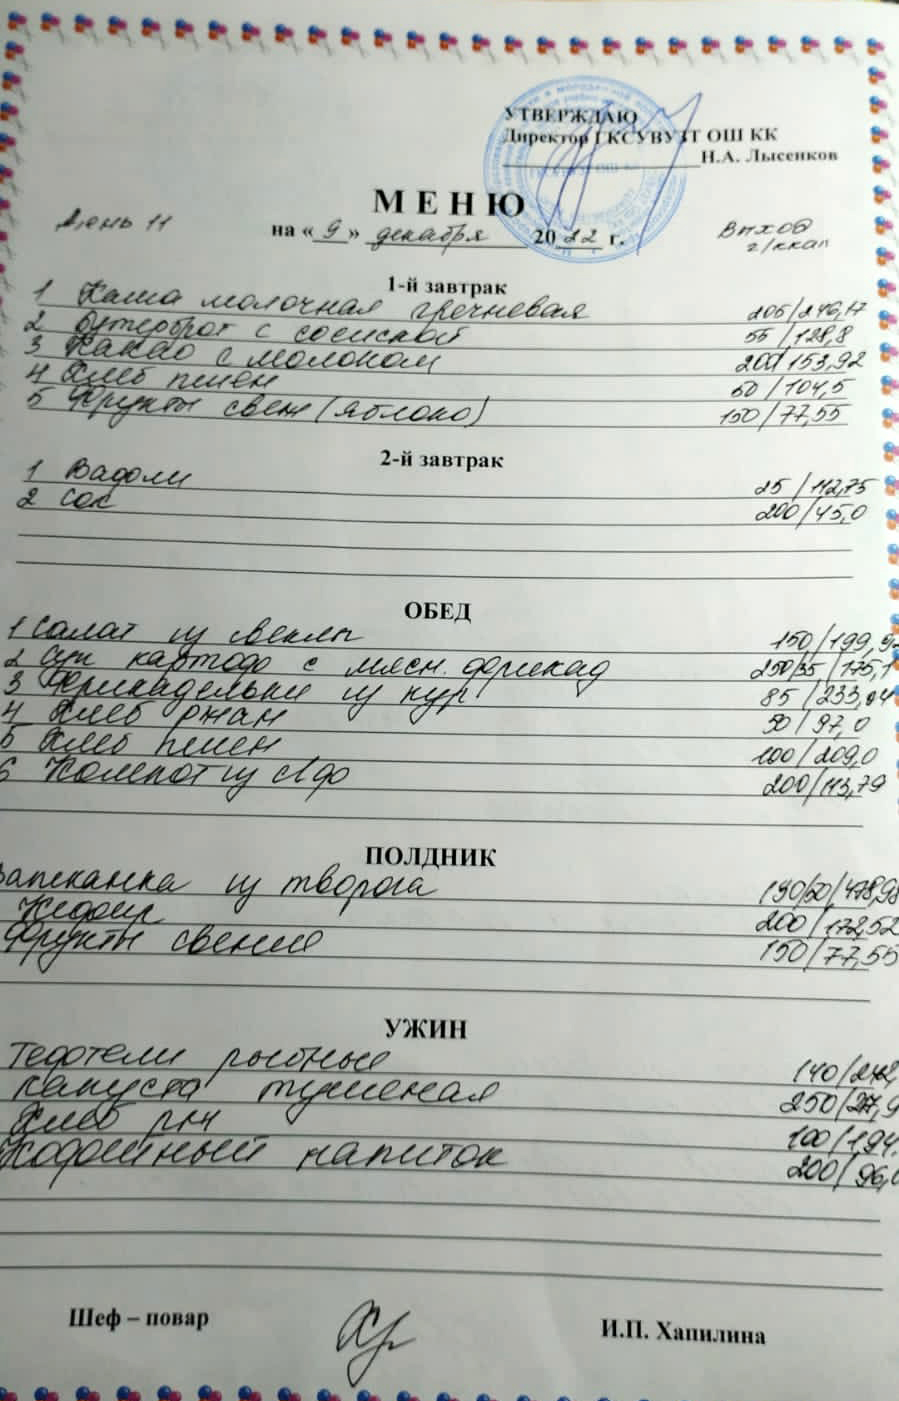 УТВЕРЖДАЮ
Директор ГКСУВУЗТ ОШ КК
Н.А. Лысенков
МЕНЮ
День 11
на «9» декабря 2022 г.
Выход
г/ккал
1-й завтрак
1 Каша молочная гречневая 205/246,17
2 Бутерброт с сосиской 55/128,8
3 Какао с молоком 200/153,92
4 Хлеб пшен 50/104,5
5 Фрукты свеж (яблоко) 150/77,55
2-й завтрак
1 Вафли 25/112,75
2 Сок 200/45,0
ОБЕД
1 Салат из свеклы 150/199,92
2 Суп картофе с мясн. фрикад 250/35/175,1
3 Фрикадельки из кур 85/233,04
4 Хлеб ржан 50/97,0
5 Хлеб пшен 100/209,0
6 Компот из с/ф 200/113,79
ПОЛДНИК
Запеканка из творога 150/50/478,98
Кефир 200/172,52
Фрукты свежие 150/77,55
УЖИН
Тефтели рыбные 140/
капуста тушеная 250/
Хлеб рж 100/194,
Кофейный напиток 200/96,0
Шеф – повар
И.П. Хапилина